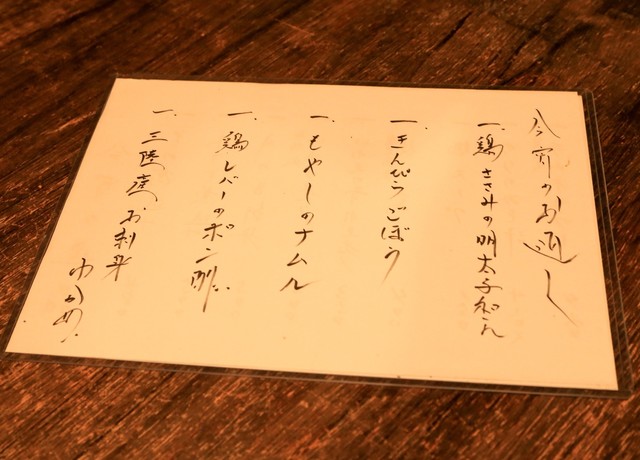 今宵のお通し
一、鶏ささみの明太子和え
一、きんぴらごぼう
一、もやしのナムル
一、鶏レバーのポン酢
一、三陸産お刺身
わかめ